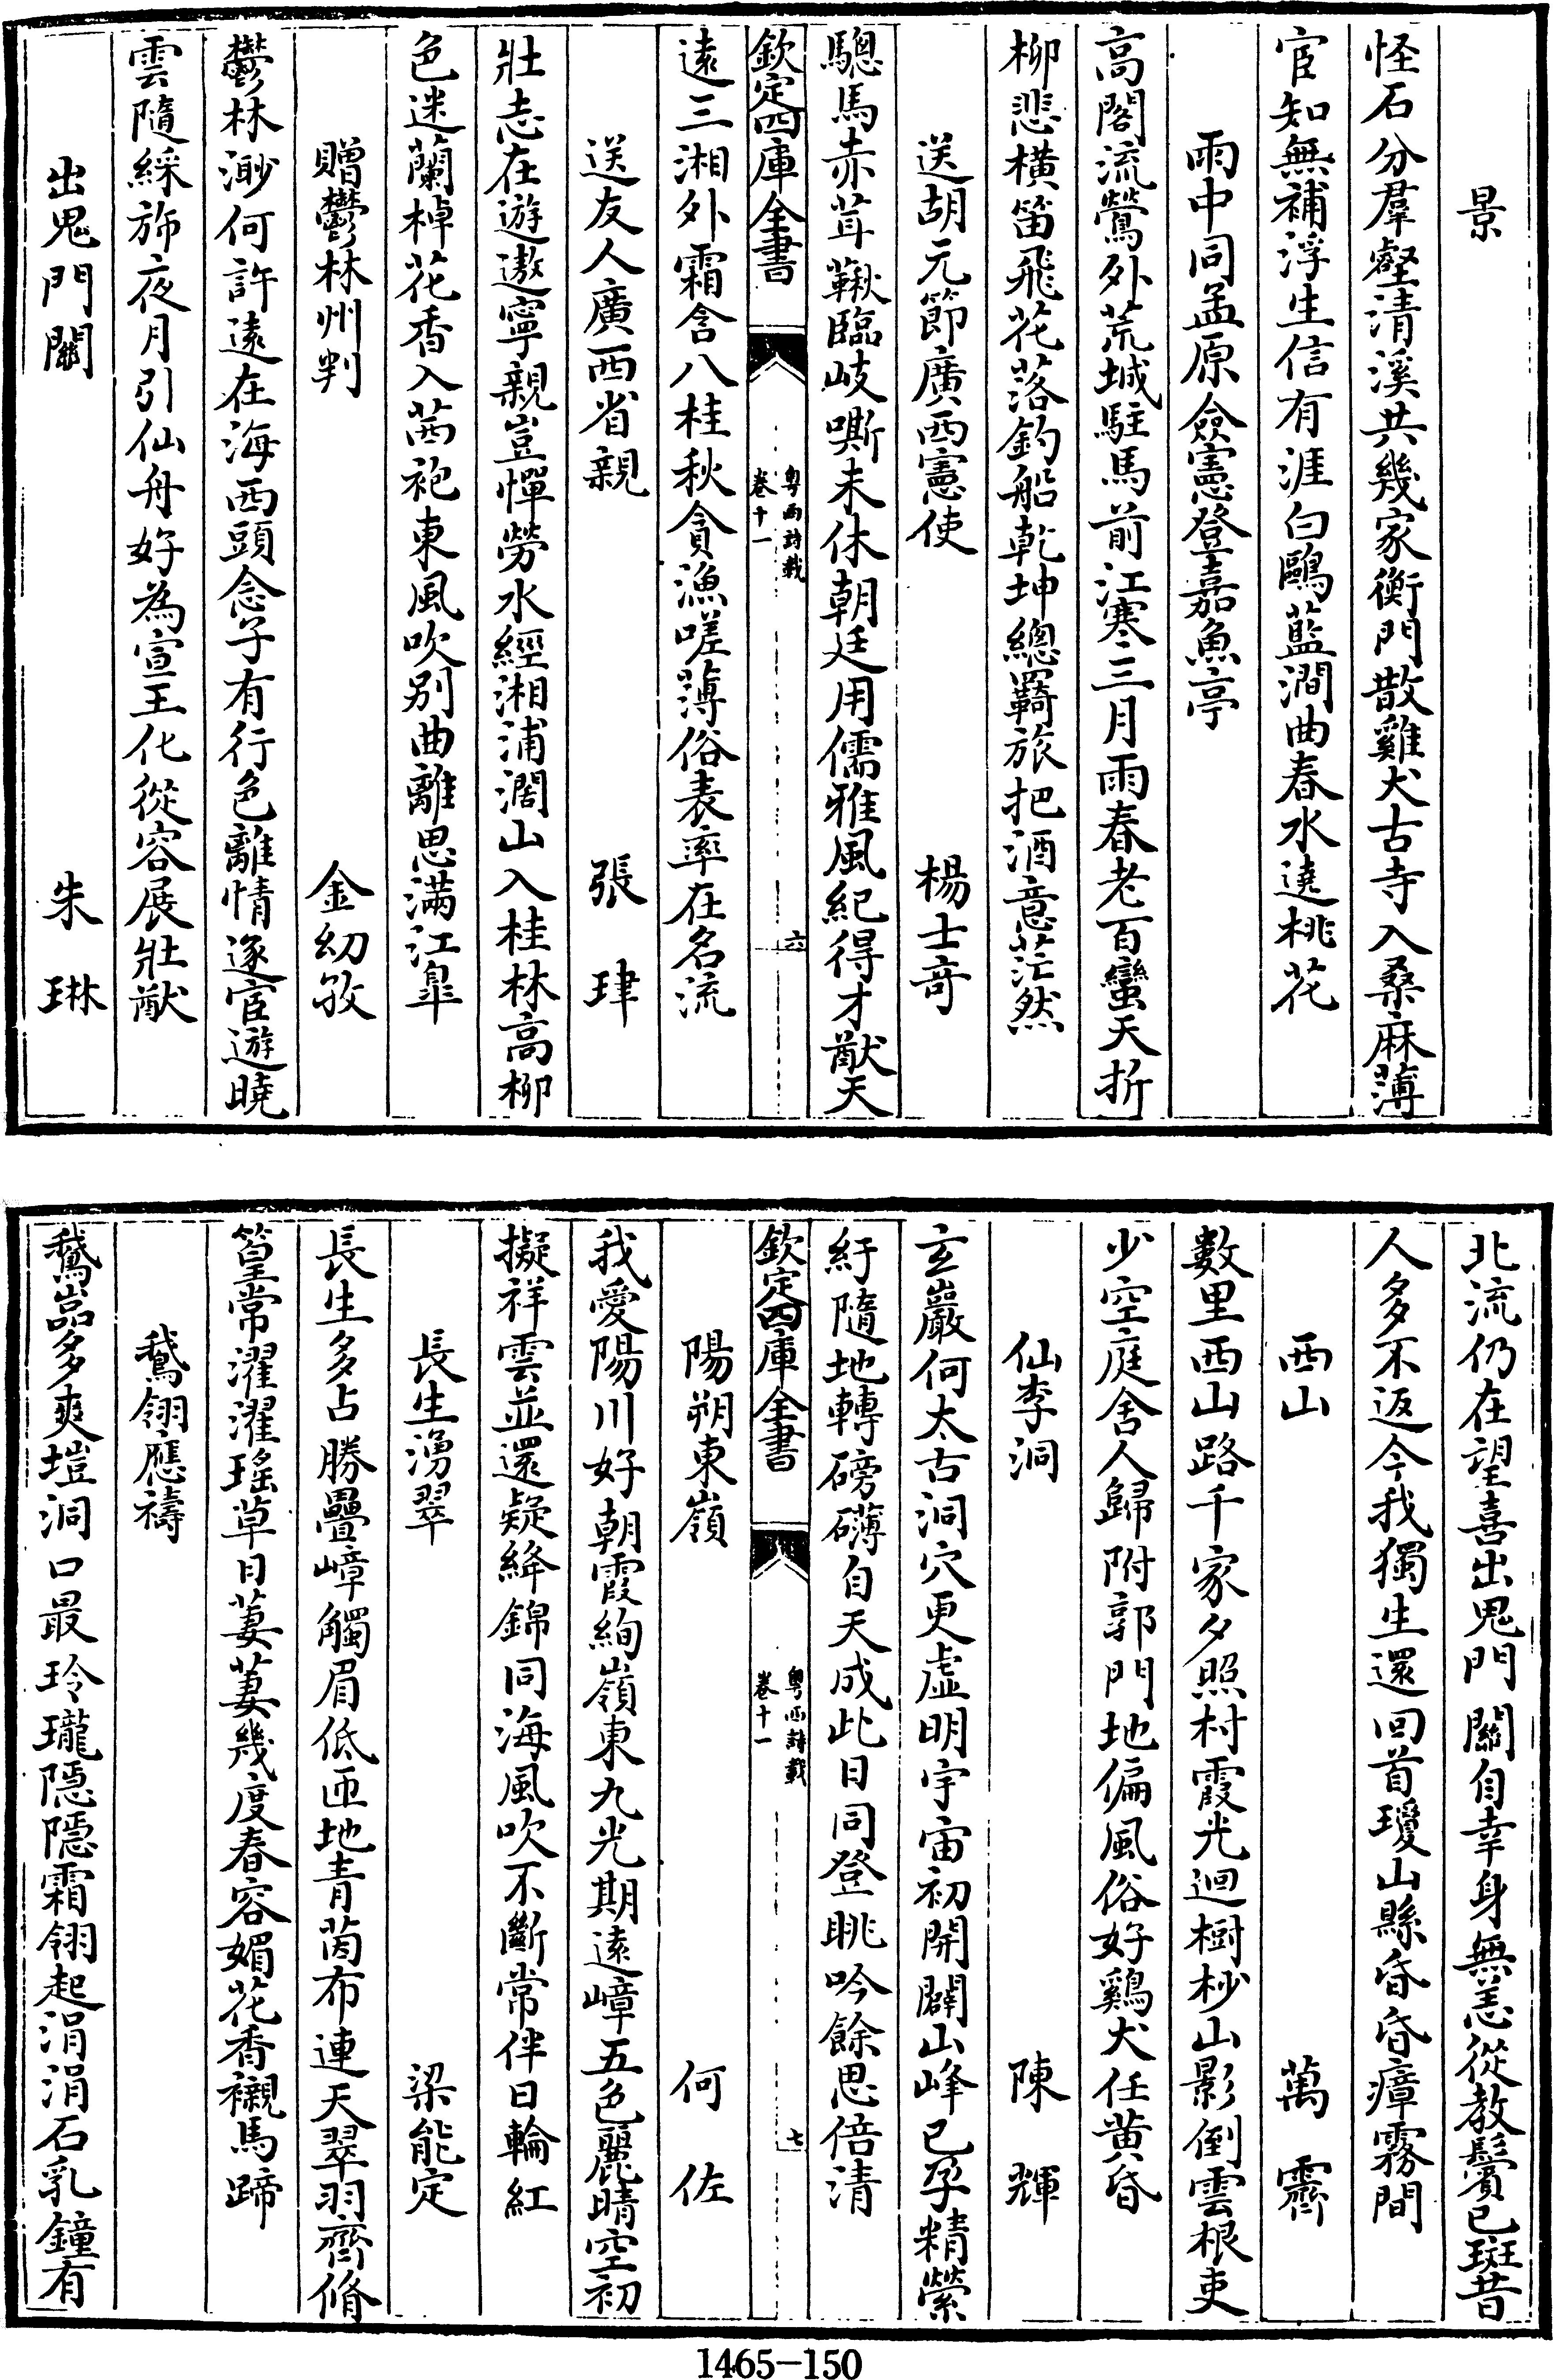 景
怪石分羣壑清溪共幾家衡門散雞犬古寺入桑麻薄
宦知無補浮生信有涯白鷗藍澗曲春水遶桃花
雨中同孟原僉憲登嘉魚亭
高閣流鶯外荒城駐馬前江寒三月雨春老百蠻天折
柳悲橫笛飛花落釣船乾坤總羇旅把酒意茫然
送胡元節廣西憲使 楊士竒
驄馬赤茸鞦臨岐嘶未休朝廷用儒雅風紀得才猷天
欽定四庫全書 粤西詩載 卷十一 六
遠三湘外霜含八桂秋貪漁嗟薄俗表率在名流
送友人廣西省親 張㻶
壯志在遊遨寧親豈憚勞水經湘浦濶山入桂林高柳
色迷蘭棹花香入茜袍東風吹别曲離思滿江臯
贈鬱林州判 金幼孜
鬱林渺何許遠在海西頭念子有行色離情逐宦遊曉
雲隨綵斾夜月引仙舟好為宣王化從容展壯猷
出鬼門關 朱琳
北流仍在望喜出鬼門關自幸身無恙從教鬢已斑昔
人多不返今我獨生還回首瓊山縣昏昏瘴霧間
西山 萬霽
數里西山路千家夕照村霞光迴樹杪山影倒雲根吏
少空庭舍人歸附郭門地偏風俗好鷄犬任黄昏
仙李洞 陳輝
玄巖何太古洞穴更虚明宇宙初開闢山峰已孕精縈
紆隨地轉磅礴自天成此日同登眺吟餘思倍清
欽定四庫全書 粤西詩載 卷十一 七
陽朔東嶺 何佐
我愛陽川好朝霞絢嶺東九光期遠嶂五色麗晴空初
擬祥雲並還疑絳錦同海風吹不斷常伴日輪紅
長生湧翠 梁能定
長生多占勝疊嶂觸眉低匝地青茵布連天翠羽齊脩
篁常濯濯瑤草日萋萋幾度春容媚花香襯馬蹄
鵞翎應禱
鵞嵓多爽塏洞口最玲瓏隱隱霜翎起涓涓石乳鐘有
1465-150